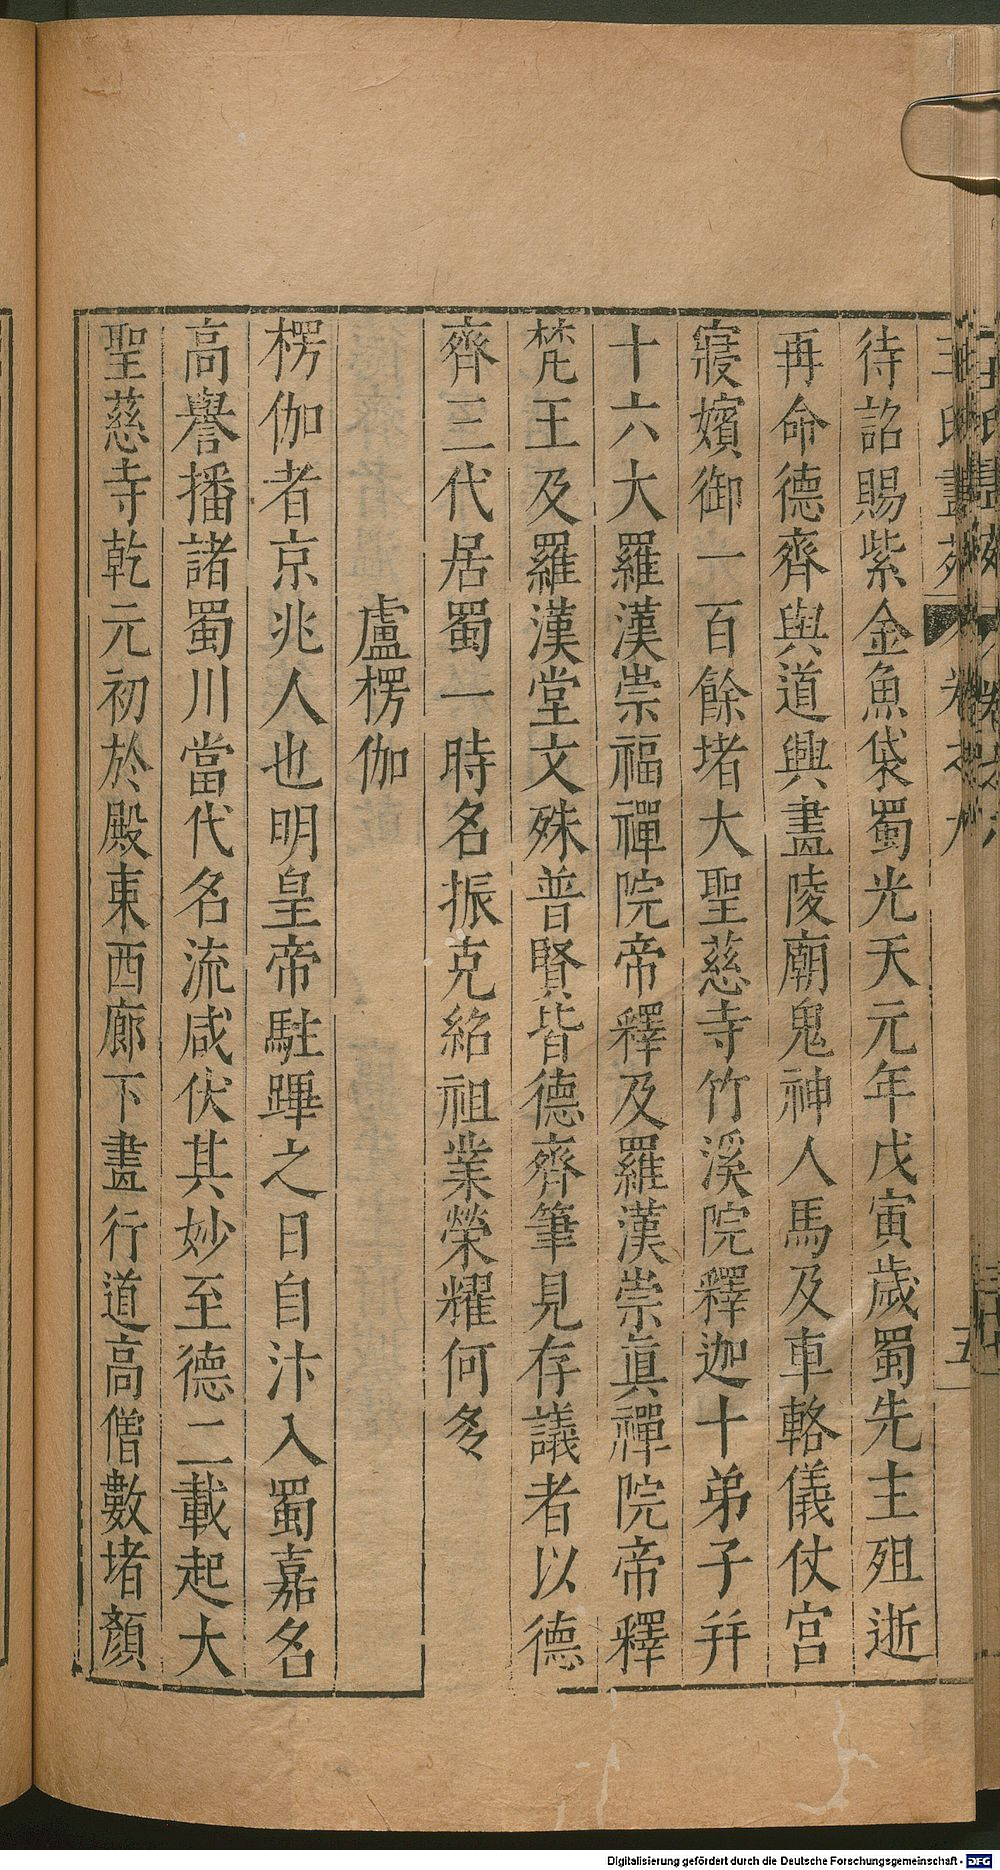 待詔賜紫金魚袋蜀光天元年戊寅歲蜀先主殂逝
再命德齊與道興畫陵廟鬼神人馬及車輅儀仗宮
寢嬪御一百餘堵大聖慈寺竹溪院釋迦十弟子并
十六大羅漢崇福禪院帝釋及羅漢崇眞禪院帝釋
梵王及羅漢堂文殊普賢皆德齊筆見存議者以德
齊三代居蜀一時名振克紹祖業榮耀何多
盧楞伽
楞伽者京兆人也明皇帝駐蹕之日自汴入蜀嘉名
高譽播諸蜀川當代名流咸伏其妙至德二載起大
聖慈寺乾元初於殿東西廊下畫行道高僧數堵顏
Digitalisierung gefördert durch die Deutsche Forschungsgemeinschaft - DFG